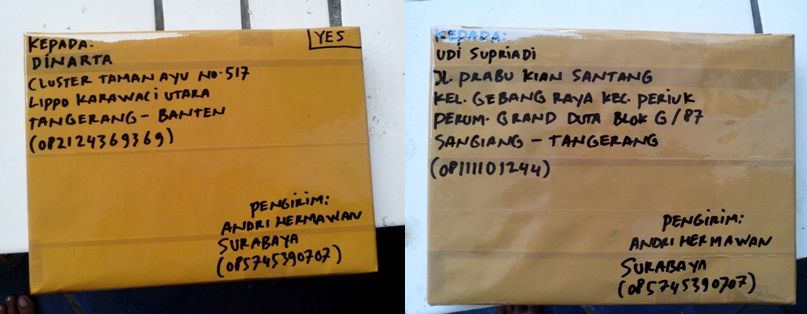 KEPADA:
YES
DINARTA
CLUSTER TAMAN AYU NO.517
LIPPO KARAWACI UTARA
TANGERANG - BANTEN
(082124369369)
PENGIRIM:
ANDRI HERMAWAN
SURABAYA
(085745390707)
KEPADA:
UDI SUPRIADI
JL. PRABU KIAN SANTANG
KEL. GEBANG RAYA KEC. PERIUK
PERUM. GRAND DUTA BLOK G/87
SANGIANG - TANGERANG
(08111101244)
PENGIRIM:
ANDRI HERMAWAN
SURABAYA
(085745390707)